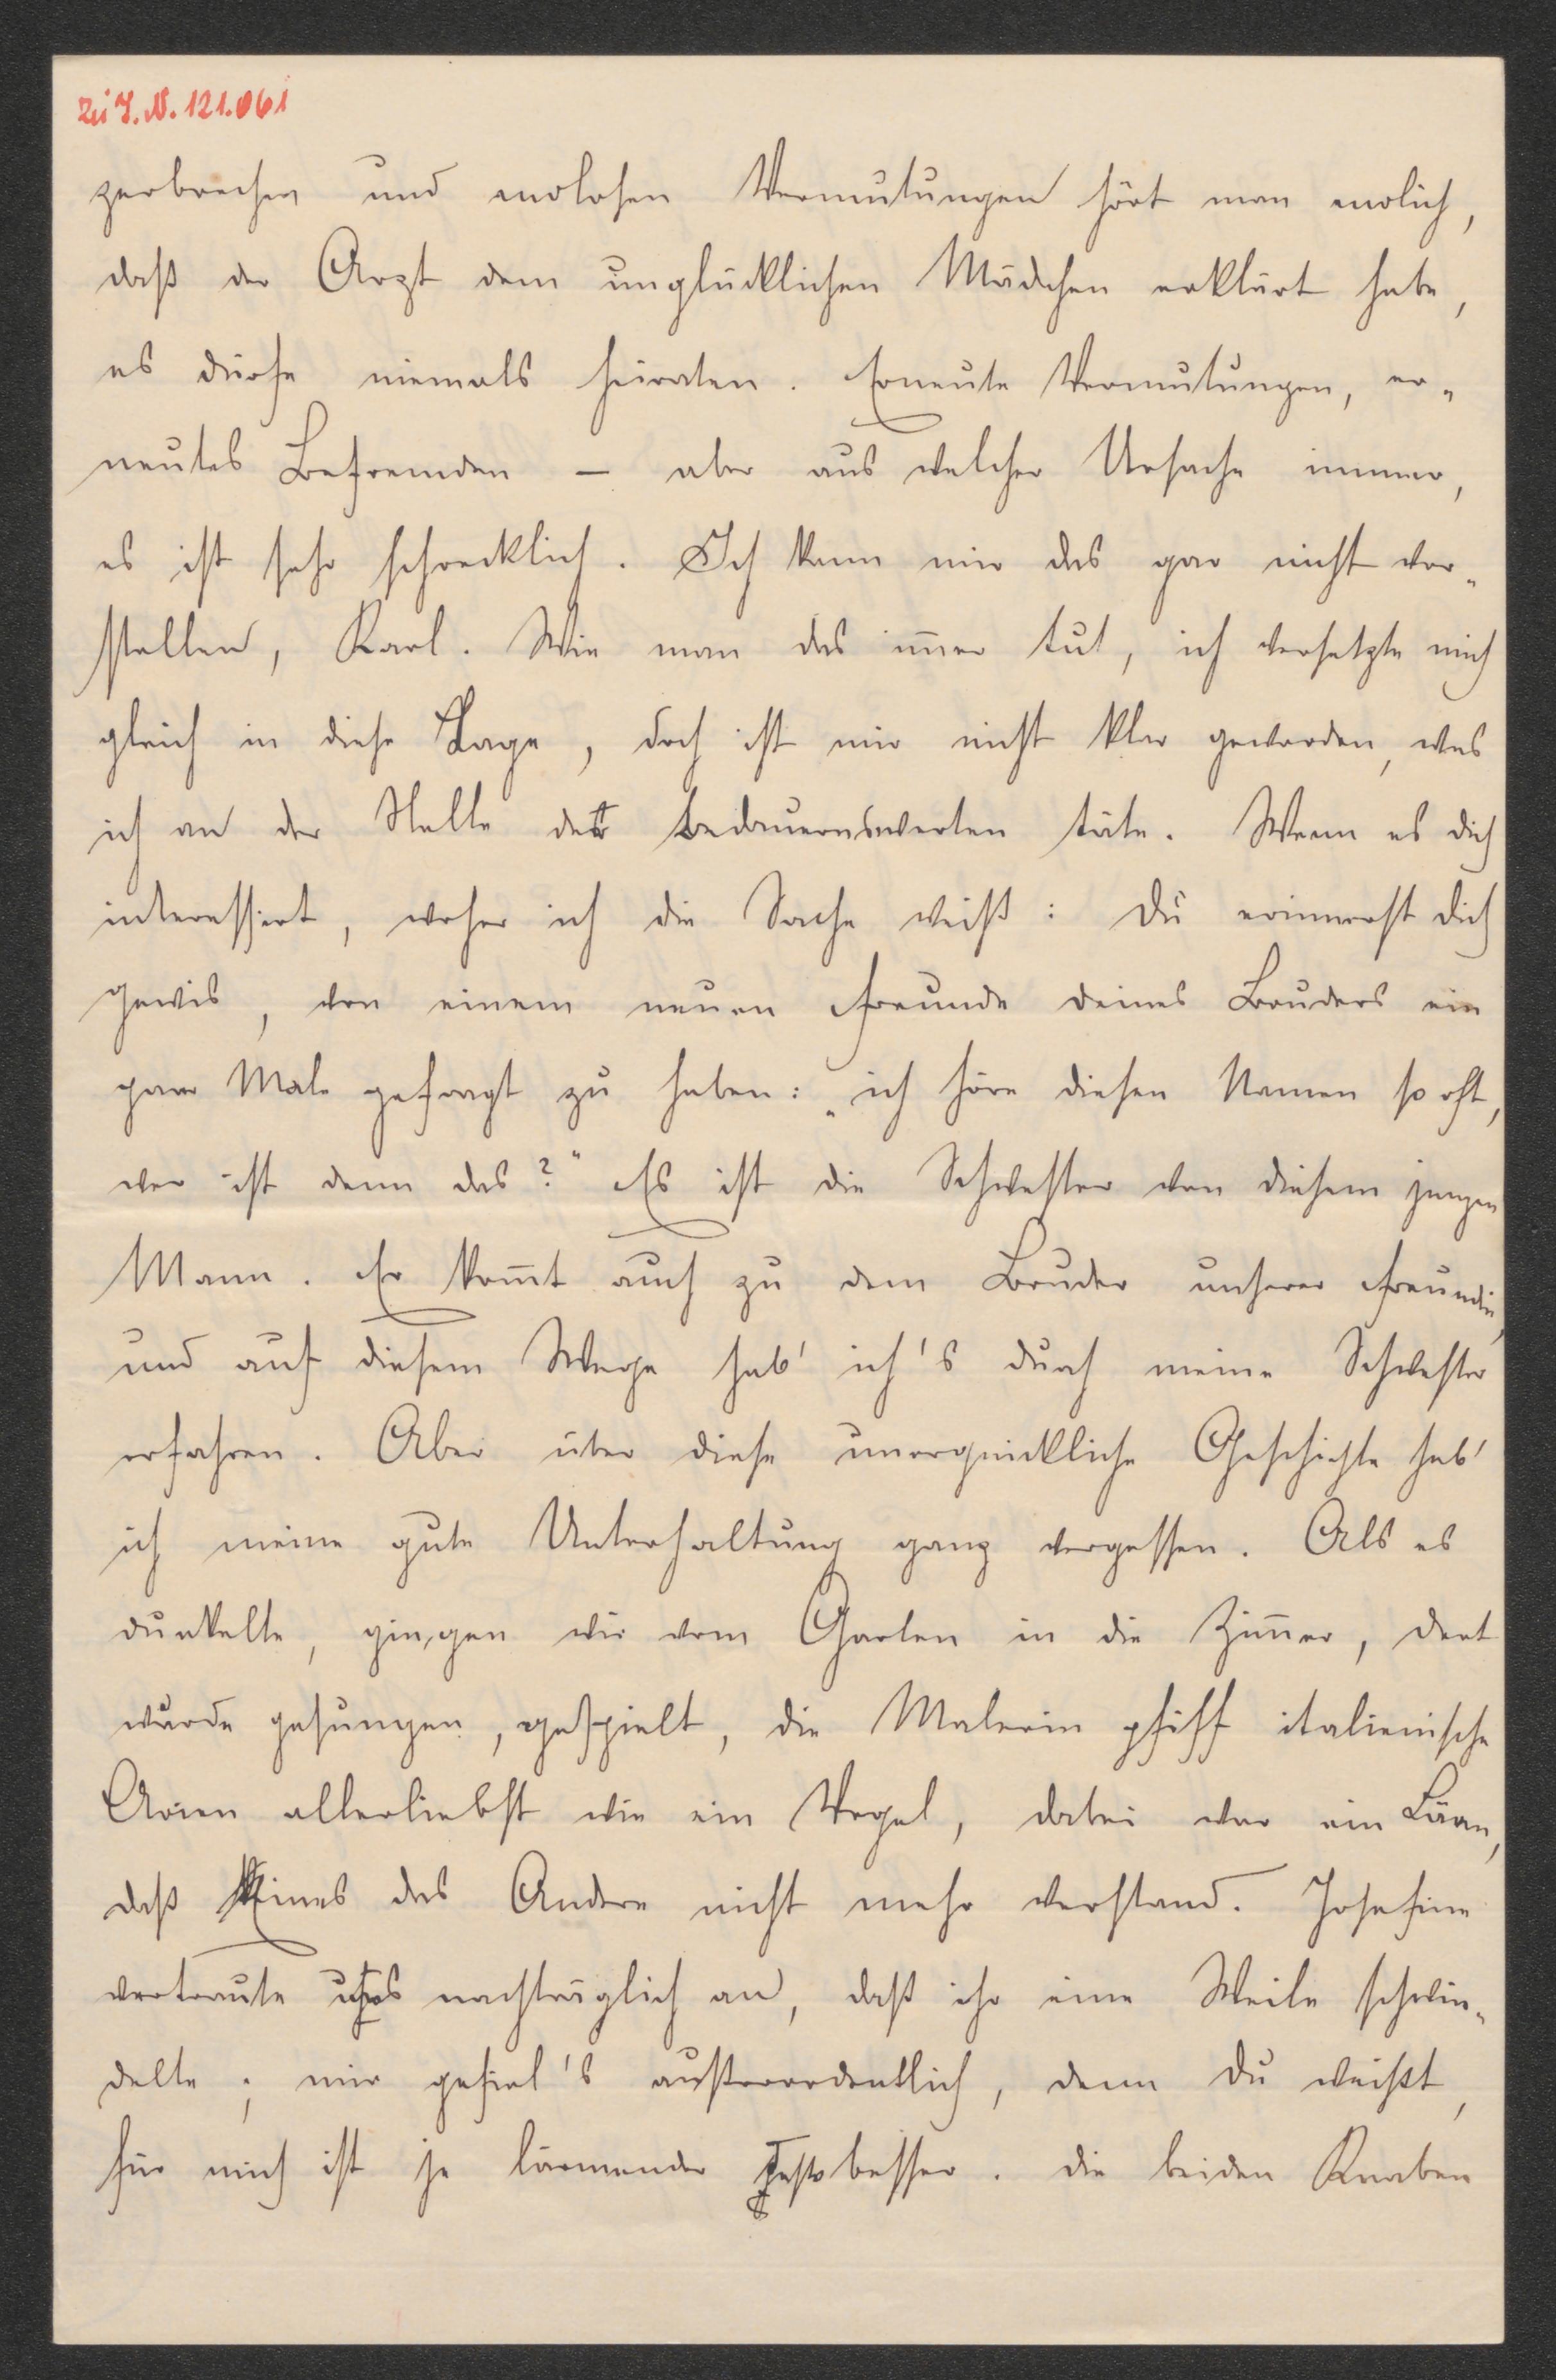 Zu I. N. 121.061
zerbrechen und endlosen Vermutungen hört man endlich,
daß der Arzt dem unglücklichen Mädchen erklärt habe,
es dürfe niemals heiraten. Erneute Vermutungen, er-
neutes Befremden – aber aus welcher Ursache immer,
es ist sehr schrecklich. Ich kann mir das gar nicht vor-
stellen, Karl. Wie man das im̄er tut, ich versetzte mich
gleich in diese Lage, doch ist mir nicht klar geworden, was
ich an der Stelle der bedauernswerten täte. Wenn es dich
interessirt, woher ich die Sache weiß: du erinnerst dich
gewis, von einem neuen Freunde deines Bruders ein
paar Male gefragt zu haben: „ich höre diesen Namen so oft,
wer ist denn das?" Es ist die Schwester von diesem jungen
Mann. Er kom̄t auch zu dem Bruder unserer Freundin,
und auf diesem Wege hab' ich's durch meine Schwester
erfahren. Aber über diese unerquickliche Geschichte hab'
ich meine gute Unterhaltung ganz vergessen. Als es
dunkelte, gingen wir vom Garten in die Zim̄er, dort
wurde gesungen, gespielt, die Malerin pfiff italienische
Arien allerliebst wie ein Vogel, dabei war ein Lärm,
daß Eines das Andere nicht mehr verstand. Josefine
vertraute uns nachträglich an, daß ihr eine Weile schwin-
delte; mir gefiel's außerordentlich, denn du weißt,
für mich ist je lärmender desto besser. die beiden Knaben